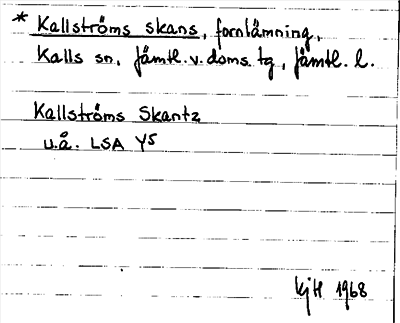 * Kallströms skans, fornlämning,
Kalls sn, Jämtl. v. doms. tg, Jämtl. l.
Kallströms Skantz
u.å. LSA Y5
KjH 1968